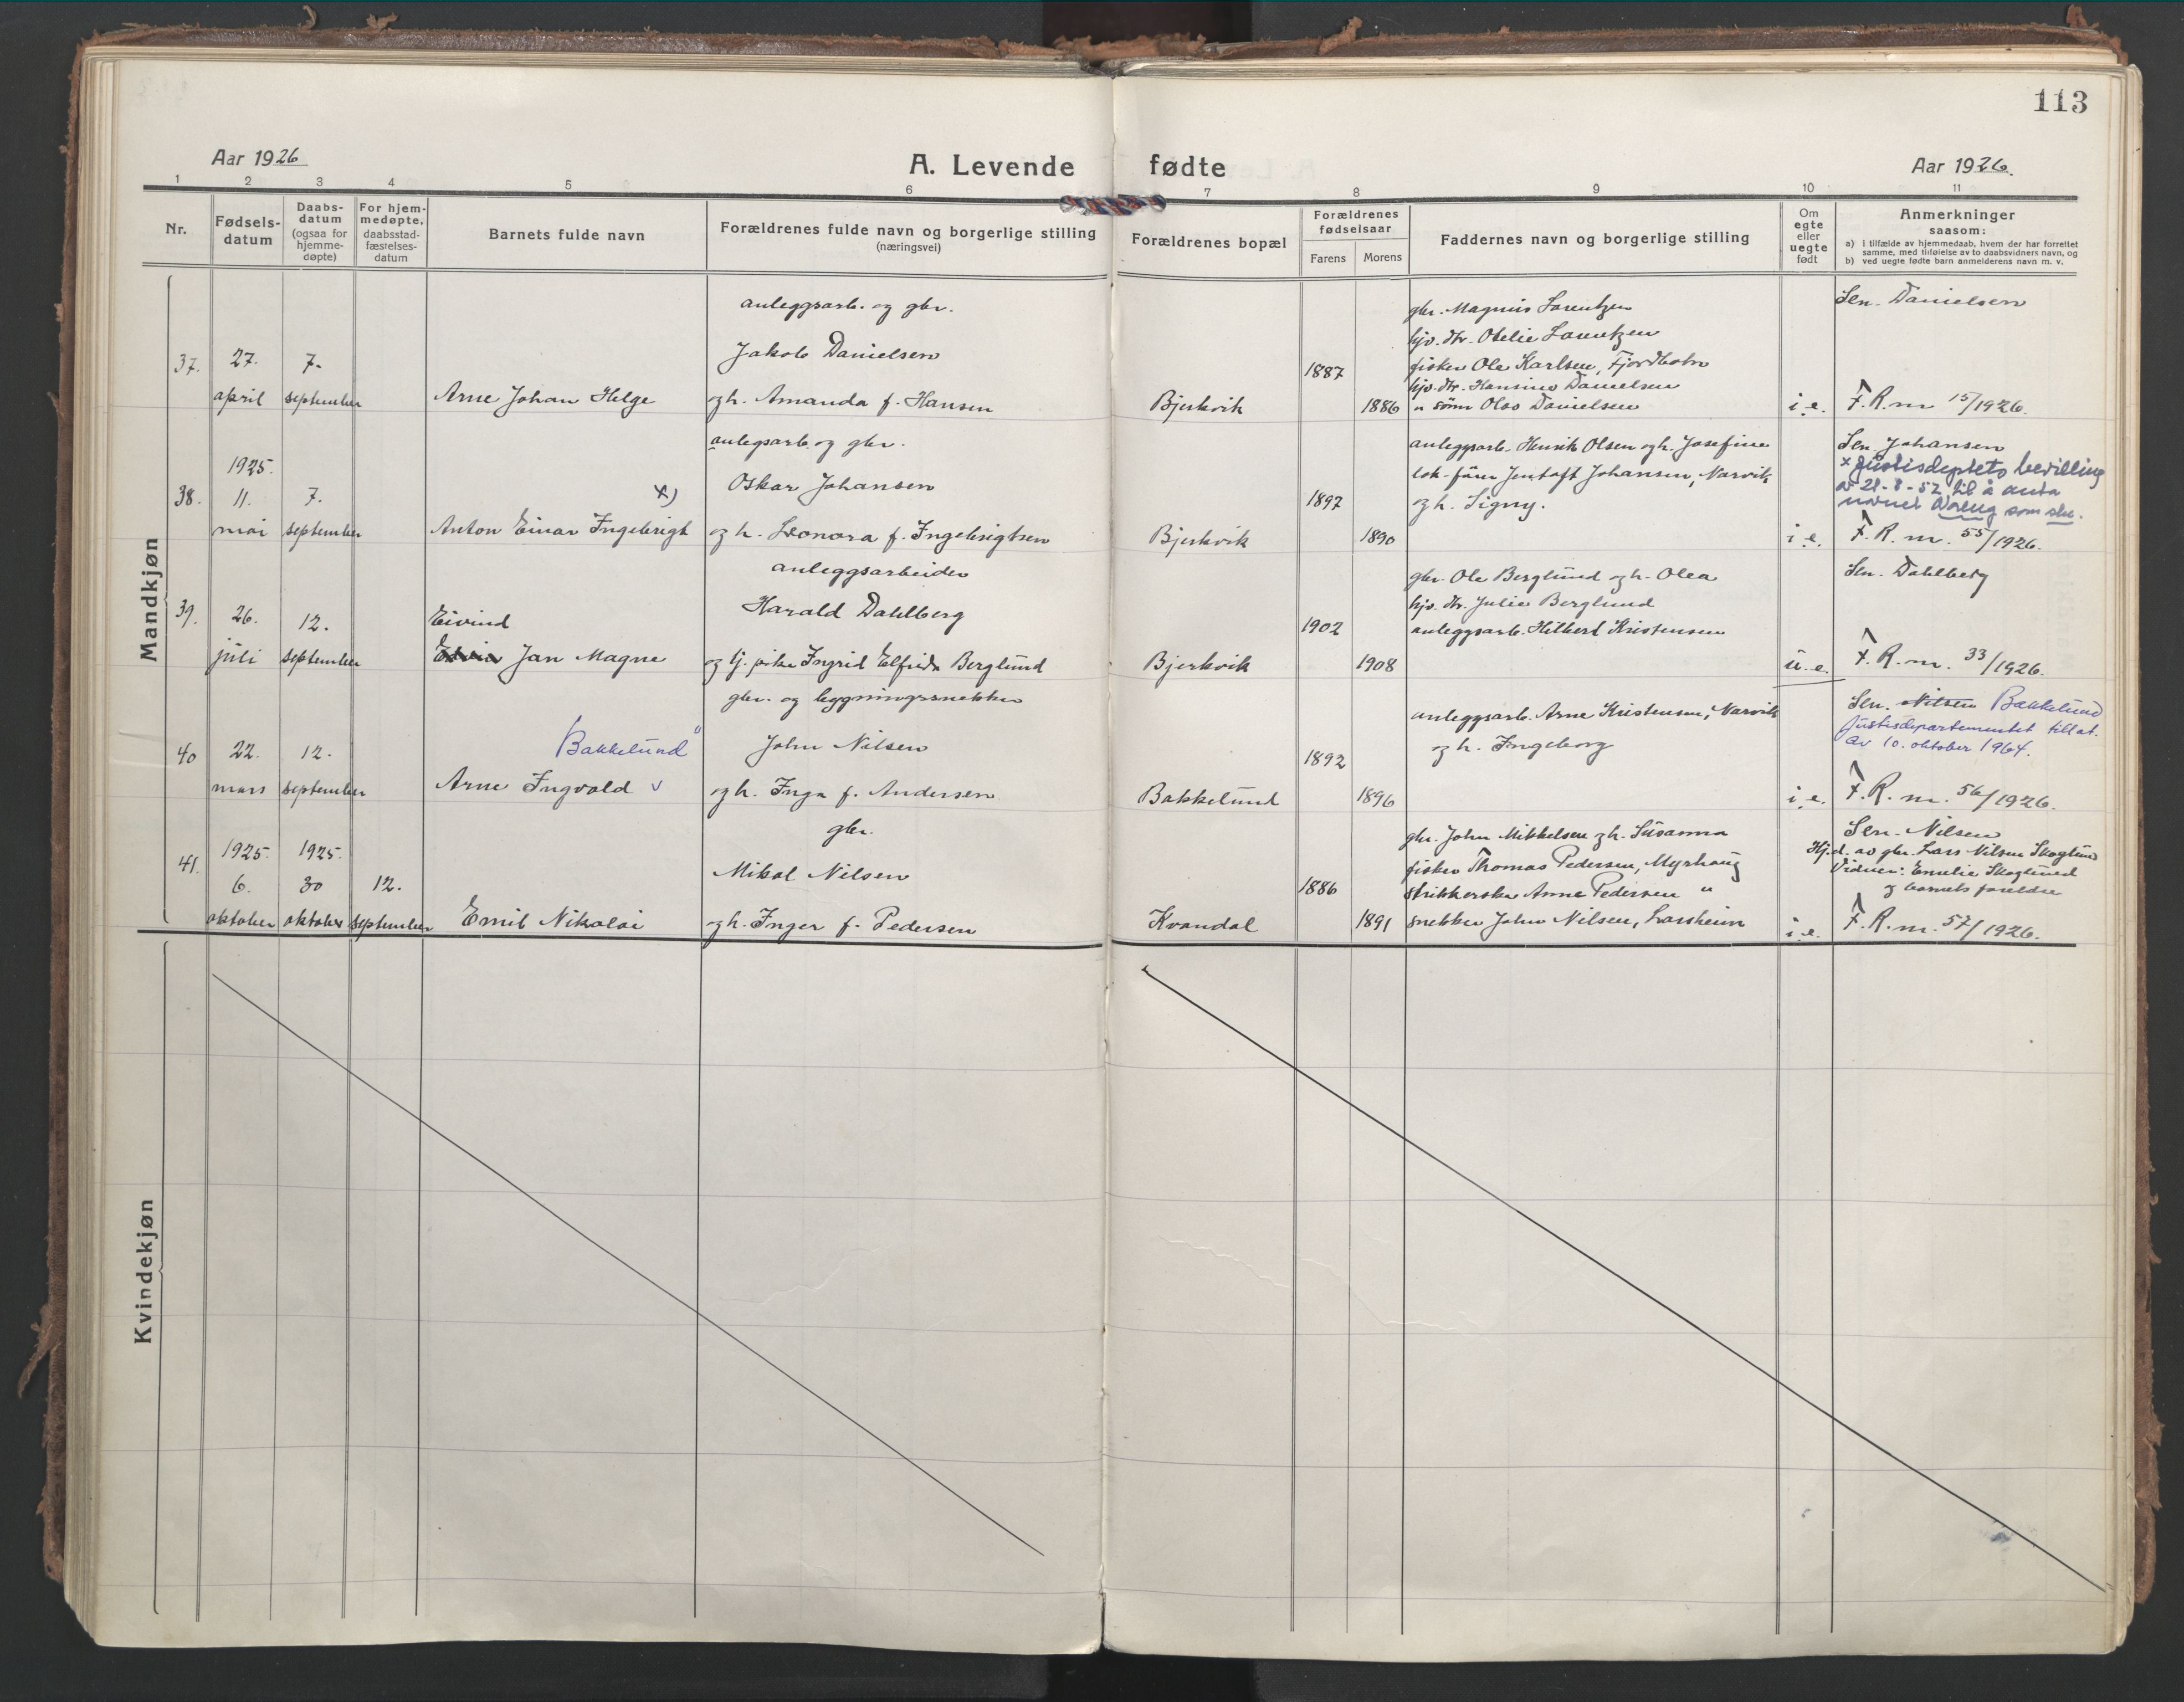 113
Aar 1926
A. Levende fødte
Aar 1926.
1 2 3 4 5 6 7 8 9 10 11
Nr.
Fødsels-
datum
Daabs-
datum
(ogsaa for
hjemme-
døpte)
For hjem-
medøpte,
daabsstad-
fæstelses-
datum
Barnets fulde navn
Forældrenes fulde navn og borgerlige stilling
(næringsvei)
Forældrenes bopæl
Forældrenes
fødselsaar
Farens
Morens
Faddernes navn og borgerlige stilling
Om
egte
eller
uegte
født
Anmerkninger
saasom:
a) i tilfælde av hjemmedaab, hvem der har forrettet
samme, med tilføielse av to daabsvidners navn, og
b) ved uegte fødte barn anmelderens navn m. v.
Mandkjøn
37.
27.
april
7.
september
Arne Johan Helge
anleggsarb. og gbr.
Jakob Danielsen
og h. Amanda f. Hansen
Bjerkvik
1887
1886
gbr. Magnus Lorentzen
hjv. dtr. Otelie Lorentzen
fisker Ole Karlsen, Fjordbotn
hjv. dtr. Hansine Danielsen
" sönn Olav Danielsen
i. e.
Sln. Danielsen
F. R. m 15/1926.
38.
1925.
11.
mai
7.
september
x)
Anton Einar Ingebrigt
anlegsarb. og gbr.
Oskar Johansen
og h. Leonora f. Ingebrigtsen
Bjerkvik
1897
1890
anleggsarb. Henrik Olsen og h. Josefine
lok-fører Jentoft Johansen, Narvik
og h. Signy.
i e.
Sln. Johansen
x Justisdeptets bevilling
av 21-8-52 til å anta
navnet som sln.
F. R. m. 55/1926.
39.
26.
juli
12.
september
Eivind
Jan Magne
anleggsarbeider
Harald Dahlberg
og tj. pike Ingrid Elfrida Berglund
Bjerkvik
1902
1908
gbr. Ole Berglund og h. Olea
hjv. dtr. Julie Berglund
anleggsarb. Hilbert Kristensen
u. e.
Sln. Dahlberg
F. R. m. 33/1926.
40
22.
mars
12.
september
Bakkelund"
Arne Ingvald v
gbr. og bygningssnekker
John Nilsen
og h. Inga f. Andersen
Bakkelund
1892
1896
anleggsarb. Arne Kristensen, Narvik
og h. Ingeborg
i. e.
Sln. Nilsen Bakkelund
Justisdepartementet tillat.
av 10. oktober 1964.
F. R. m. 56/1926.
41.
1925.
6.
oktober
1925.
30
oktober
12.
september
Emil Nikolai
gbr.
Mikal Nilsen
og h. Inger f. Pedersen
Kvandal
1886
1891
gbr. John Mikkelsen og h. Susanna
fisker Thomas Pedersen, Myrhaug
strikkerske Anne Pedersen "
snekker John Nilsen, Larsheim
i. e.
Sln. Nilsen
Hj. d. av gbr. Lars Nilsen Skoglund
Vidner: Emelie Skoglund
og barnets foreldre
F. R. m. 57/1926.
Kvindekjøn